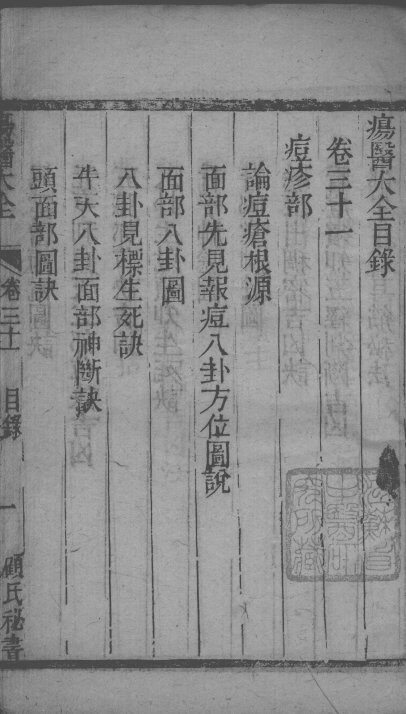 瘍醫大全目錄
卷三十一
痘疹部
論痘瘡根源
面部先見報痘八卦方位圖說
面部八卦圖
八卦見標生死訣
牛犬八卦面部神斷訣
頭面部圖訣
瘍醫大全
卷三十一
目錄
一
顧氏秘書